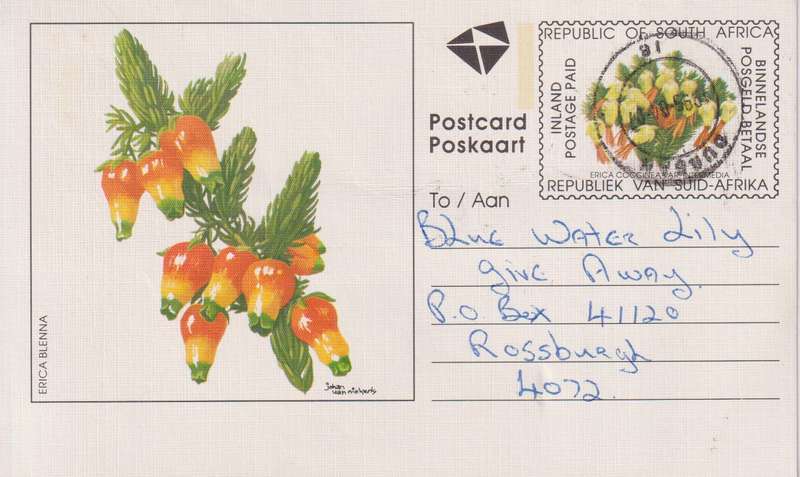 ERICA BLENNA
johan
van niekerk
Postcard
Poskaart
REPUBLIC OF SOUTH AFRICA
INLAND
POSTAGE PAID
BINNELANDSE
POSGELD BETAAL
ERICA COCCINEA VAR. INTERMEDIA
REPUBLIEK VAN SUID-AFRIKA
To / Aan
Blue Water Lily
Give Away.
P.O. Box 41120
Rossburgh
4072.